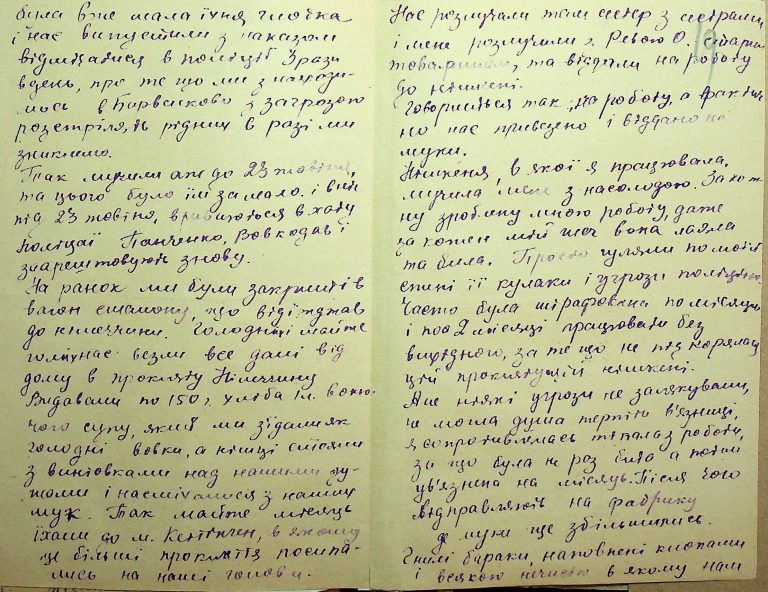 була вже мала їхня глотка
і нас випустили з наказом
відмічатися в поліції 3 рази
в день, про те що ми з находи-
мось в Барвєнково з загрозою
розстрілять рідних в разі ми
зникнемо.
Так мучили аж до 23 жовтня,
та цього було їм замало. і вніч
під 23 жовтня, вриваються в хату
поліцаї Панченко, Вовкодав і
знарештовують знову.
На ранок ми були закриті в
вагон ешалону, що відїжджав
до німеччини. Голодниці майже
голі нас везли все далі від
дому в прокляту Німеччину
Видавали по 150 г хліба 1 л. воню-
чого супу, який ми зїдали як
голодні вовки, а німці стояли
з винтовками над нашими ду-
шами і насміхалися з наших
мук. Так майже місяць
їхали до м. в якому
ще більші прокляття посипа-
лись на наші голови.
19
Нас розлучали там сестер з сестрами
і мене розлучили з Ревою О. старим
товаришом, та віддали на роботу
до німкені.
Говориться так, на роботу, а фактич-
но нас приведено і віддано на
муки.
Німкеня, в якої я працювала,
мучила мене з насолодою. За кож-
ну зроблену мною роботу, даже
за кожен мій меч вона лаяла
та била. Просто гуляли по моїй
спині її кулаки і угрози поліцією.
Часто була штрафована по місяцю
і по 2 місяці працювати без
вихідного, за те що не підкорялась
цій проклятущій німкені.
Але ніякі угрози не залякували,
не могла душа терпіти в'язниці,
я сопротивлялась тікала з роботи,
за що була не раз бита а потім
ув'язнена на місяць. Після чого
відправляють на фабрику
де муки ще збільшились.
Гнилі бараки, наповнені клопами
і всякою нечистю в якому нам